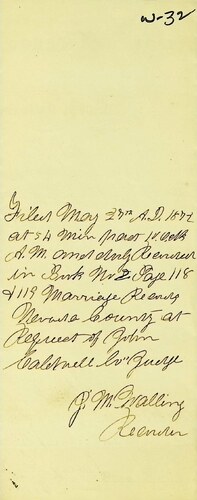 W-32
Filed May 27th A.D. 187
at 54 min past 10 Oclk
A.M. and duly Recorded
in Book No 2 Page 118
& 119 Marriage Records
Nevada County at
Request of John
Caldwell Co Judge
J McWalling
Recorder